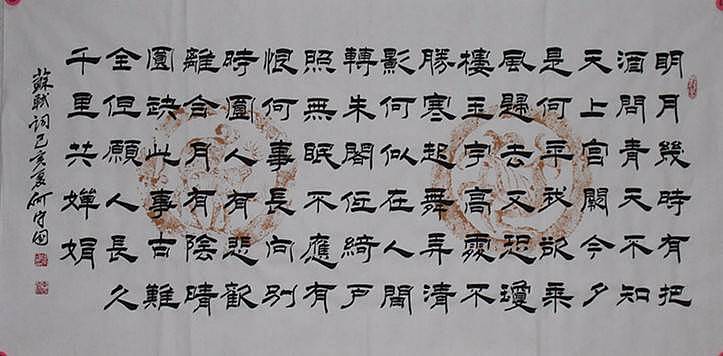 明月幾時有把
酒問青天不知
天上宮闕今夕
是何年我欲乘
風歸去又恐瓊
樓玉宇高處不
勝寒起舞弄清
影何似在人間
轉朱閣低綺戶
照無眠不應有
恨何事長向別
時圓人有悲歡
離合月有陰晴
圓缺此事古難
全但願人長久
千里共嬋娟
蘇軾詞己亥夏何